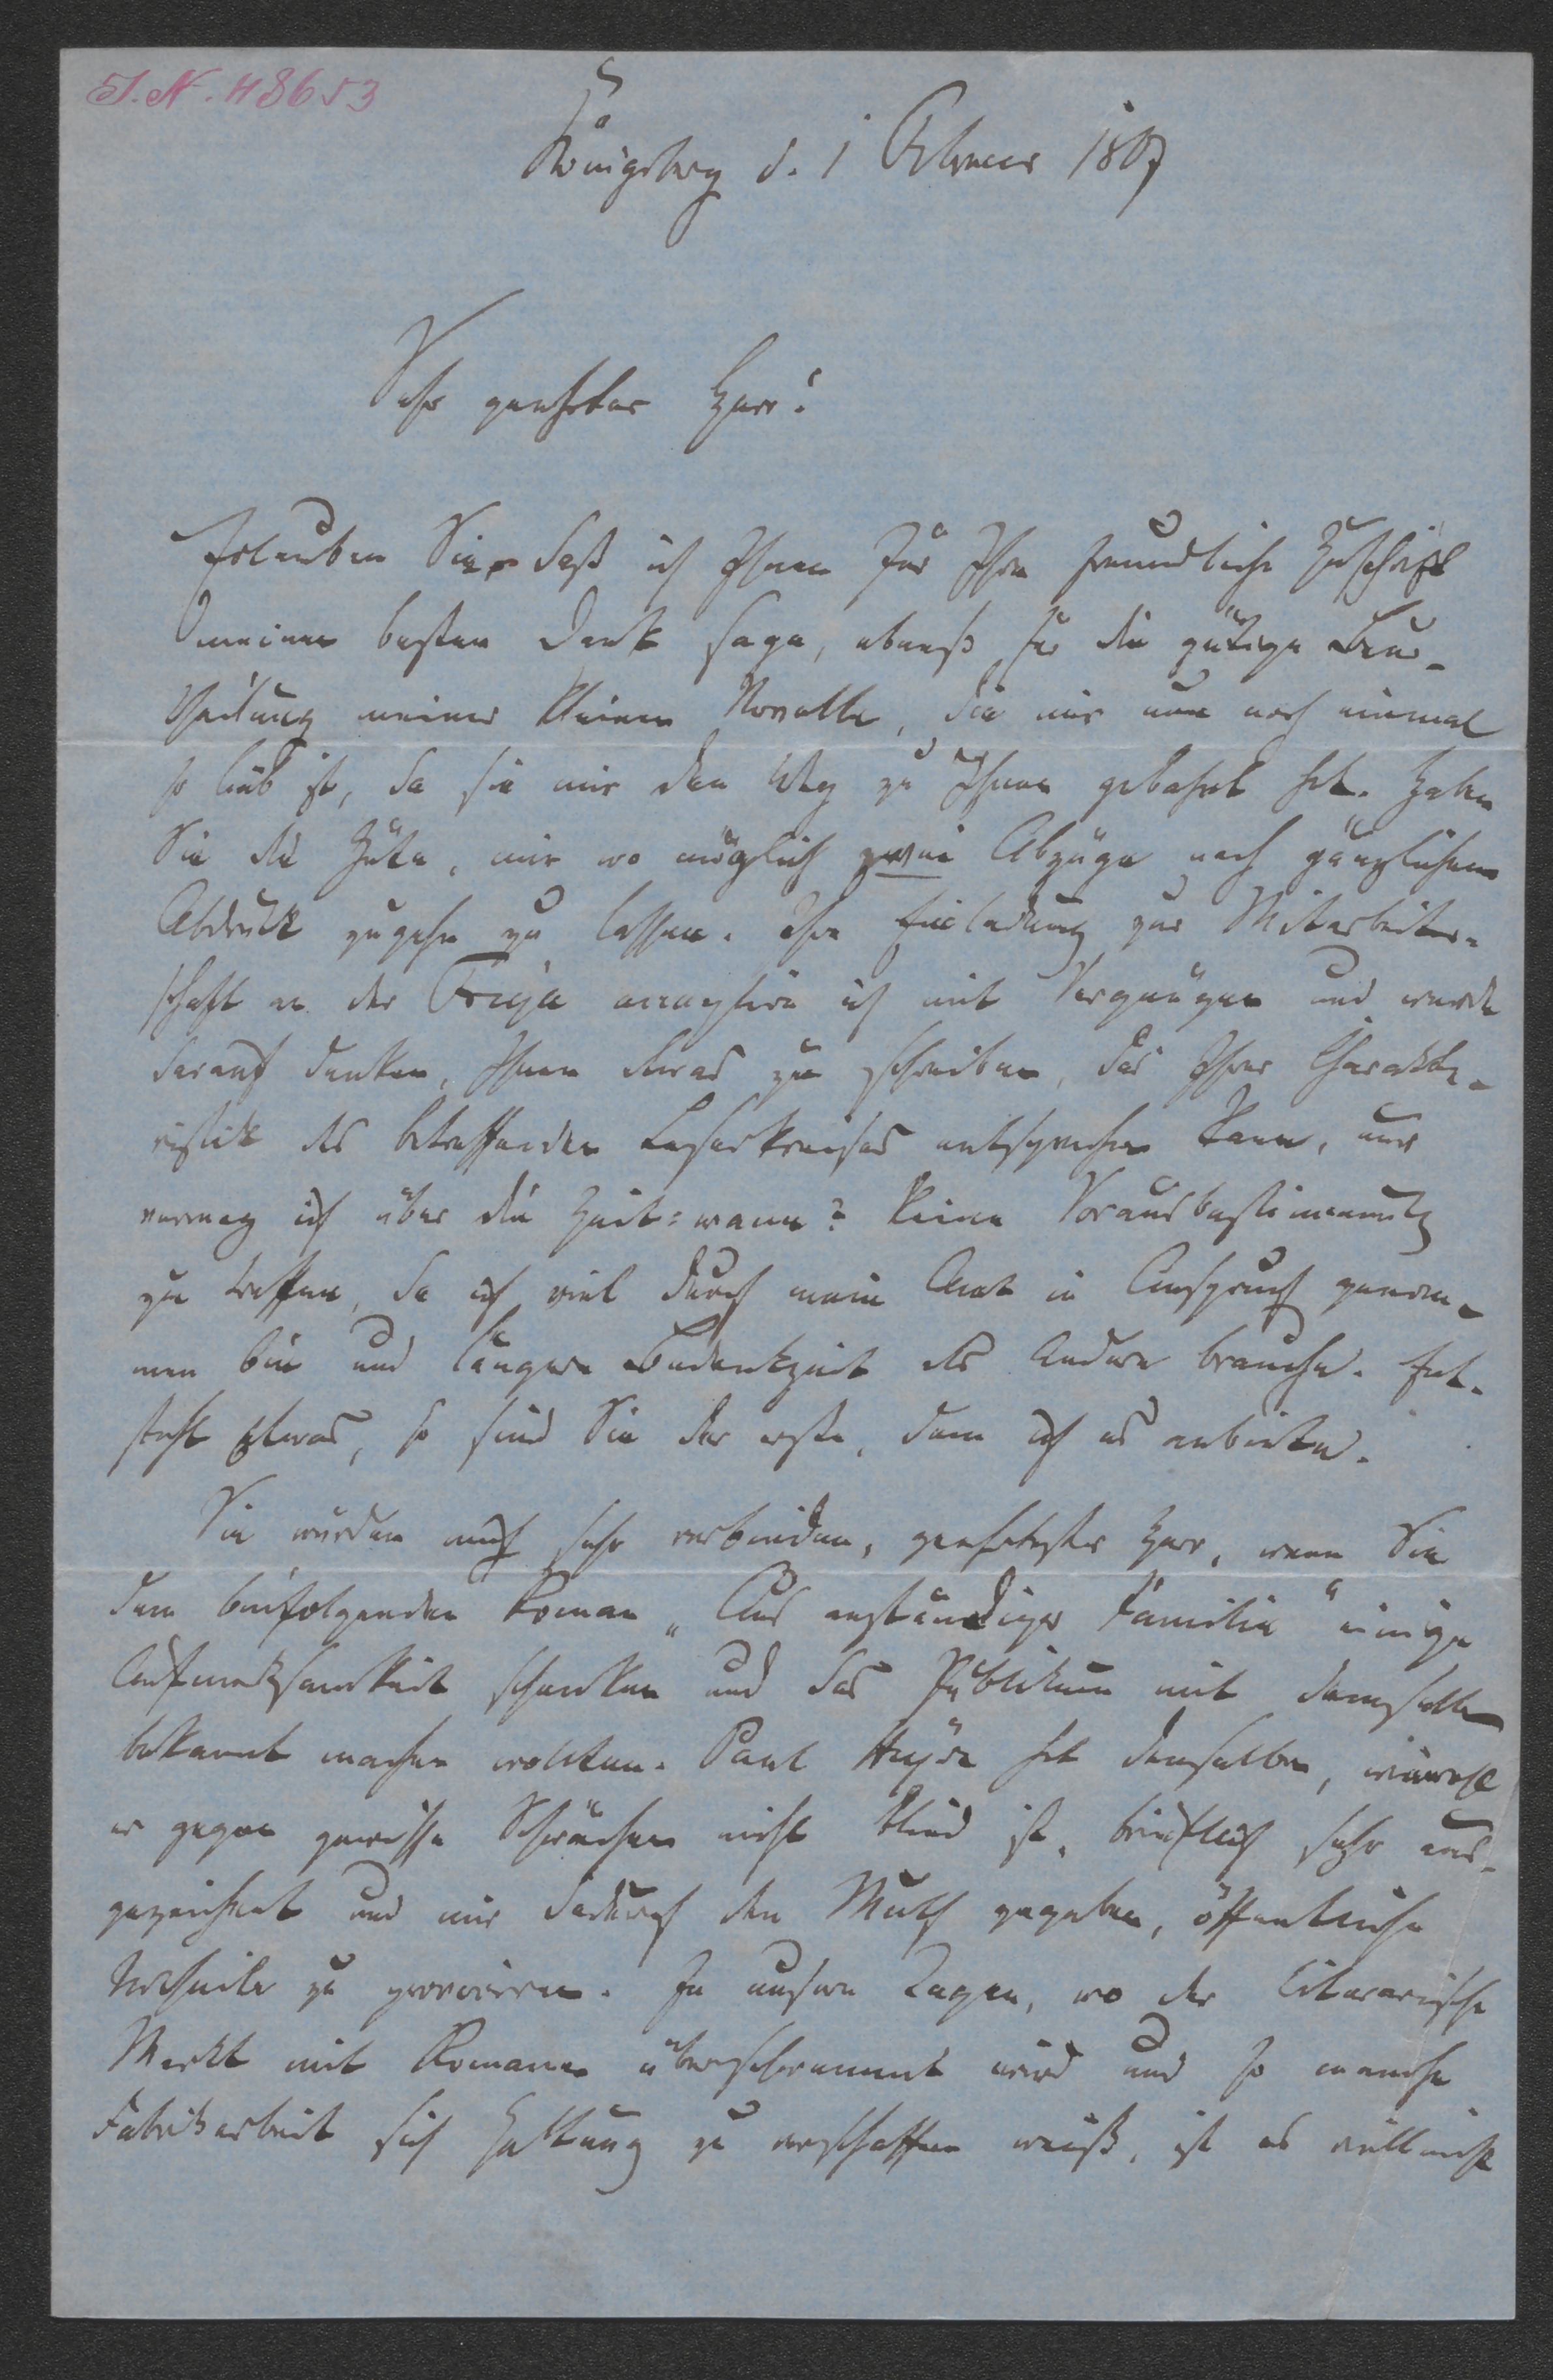 I.N. 48653
Königsberg d. 1 Februar 1867
Sehr geehrter Herr!
Erlauben Sie, daß ich Ihnen für Ihre freundliche Zuschrift
meinen besten Dank sage, ebenso für die gütige Beur-
theilung meiner kleinen Novelle, die mir nun noch einmal
so lieb ist, da sie mir den Weg zu Ihnen gebahnt hat. Haben
Sie die Güte, mir wo möglich zwei Abzüge nach gänzlichem
Abdruck zugehn zu lassen. Ihre Einladung zur Mitarbeiter-
schaft an der Freja acceptire ich mit Vergnügen und werde
darauf denken, Ihnen etwas zu schreiben, das Ihrer Charakte-
ristik des betreffenden Leserkreises entsprechen kann, nur
vermag ich über die Zeit: wann? keine Vorausbestimmung
zu treffen, da ich viel durch mein Amt in Anspruch genom-
men bin und längere Bedenkzeit als Andere brauche. Ent-
steht etwas, so sind Sie der erste, dem ich es anbiete.
Sie würden mich sehr verbinden, geehrtester Herr, wenn Sie
dem beifolgenden Roman „Aus anständiger Familie" einige
Aufmerksamkeit schenken und das Publikum mit demselben
bekannt machen wollten. Paul Heyse hat denselben, wiewohl
er gegen gewisse Schwächen nicht blind ist, brieflich sehr aus-
gezeichnet und mir dadurch den Muth gegeben, öffentliche
Urtheile zu provociren. In unsern Tagen, wo der literarische
Markt mit Romanen überschwemmt wird und so manche
Fabrikarbeit sich Geltung zu verschaffen weiß, ist es vielleicht